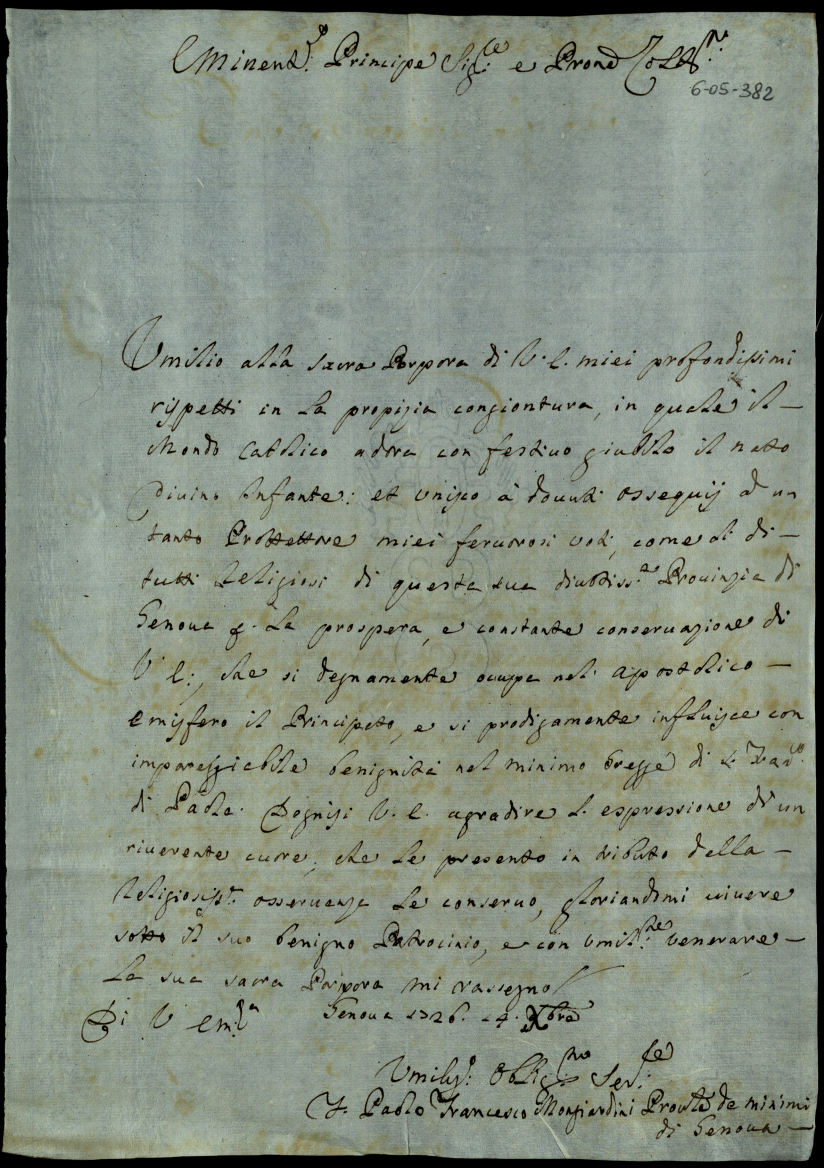 Eminent.e Principe Sig.re e Prone Coll.mo
6-05-382
Umilio alla sacra Porpora di V. E. miei profondissimi
rispetti in la propizia congiontura, in quale il
Mondo Catolico adora con festivo giubilo il nato
Divino Infante: et unisco a dovuti ossequij d un
tanto Prottettore miei fervorosi voti, come di di
tutti Religiosi di questa sua divotiss.a Provinzia di
Genova p. la prospera, e constante conservazione di
V E:, che si degnamente ocupa nel apostolico
emisfero il Principato, e si prodigamente influisce con
impareggiabile benignità nel minimo gregge di S. Fran.co
di Paola. Degnisi V. E. agradire l. espressione di un
riverente cuore, che le presento in tributo della
Religiosiss. osservanza le conservo, gloriandomi vivere
sotto il suo benigno Patrocinio, e con umil.ne venerare
la sua sacra Porpora mi rassegno
Di V Em.za Genova 1726. 14. Xbre
Umiliss. Oblig.mo Ser.re
F. Paolo Francesco Mongiardini Prov.le de minimi
di Genova